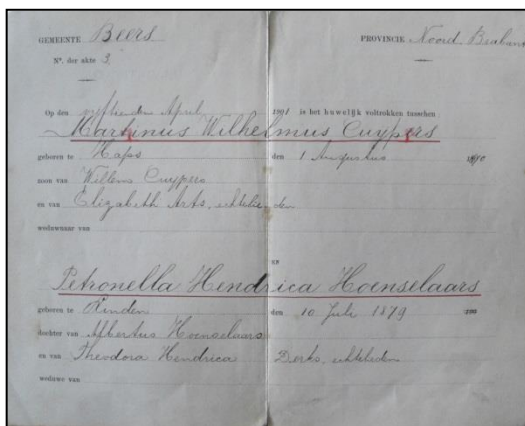 GEMEENTE Beers PROVINCIE Noord Brabant
No. der akte 3.
Op den vijftienden April 1901 is het huwelijk voltrokken tusschen
Martinus Wilhelmus Cuypers
geboren te Haps den 1 Augustus
zoon van Willem Cuypers
en van Elizabeth Arts, echtelieden
weduwnaar van
EN
Petronella Hendrica Hoenselaars
geboren te Linden den 10 Juli 1879
dochter van Albertus Hoenselaars
en van Theodora Hendrica Derks, echtelieden
weduwe van